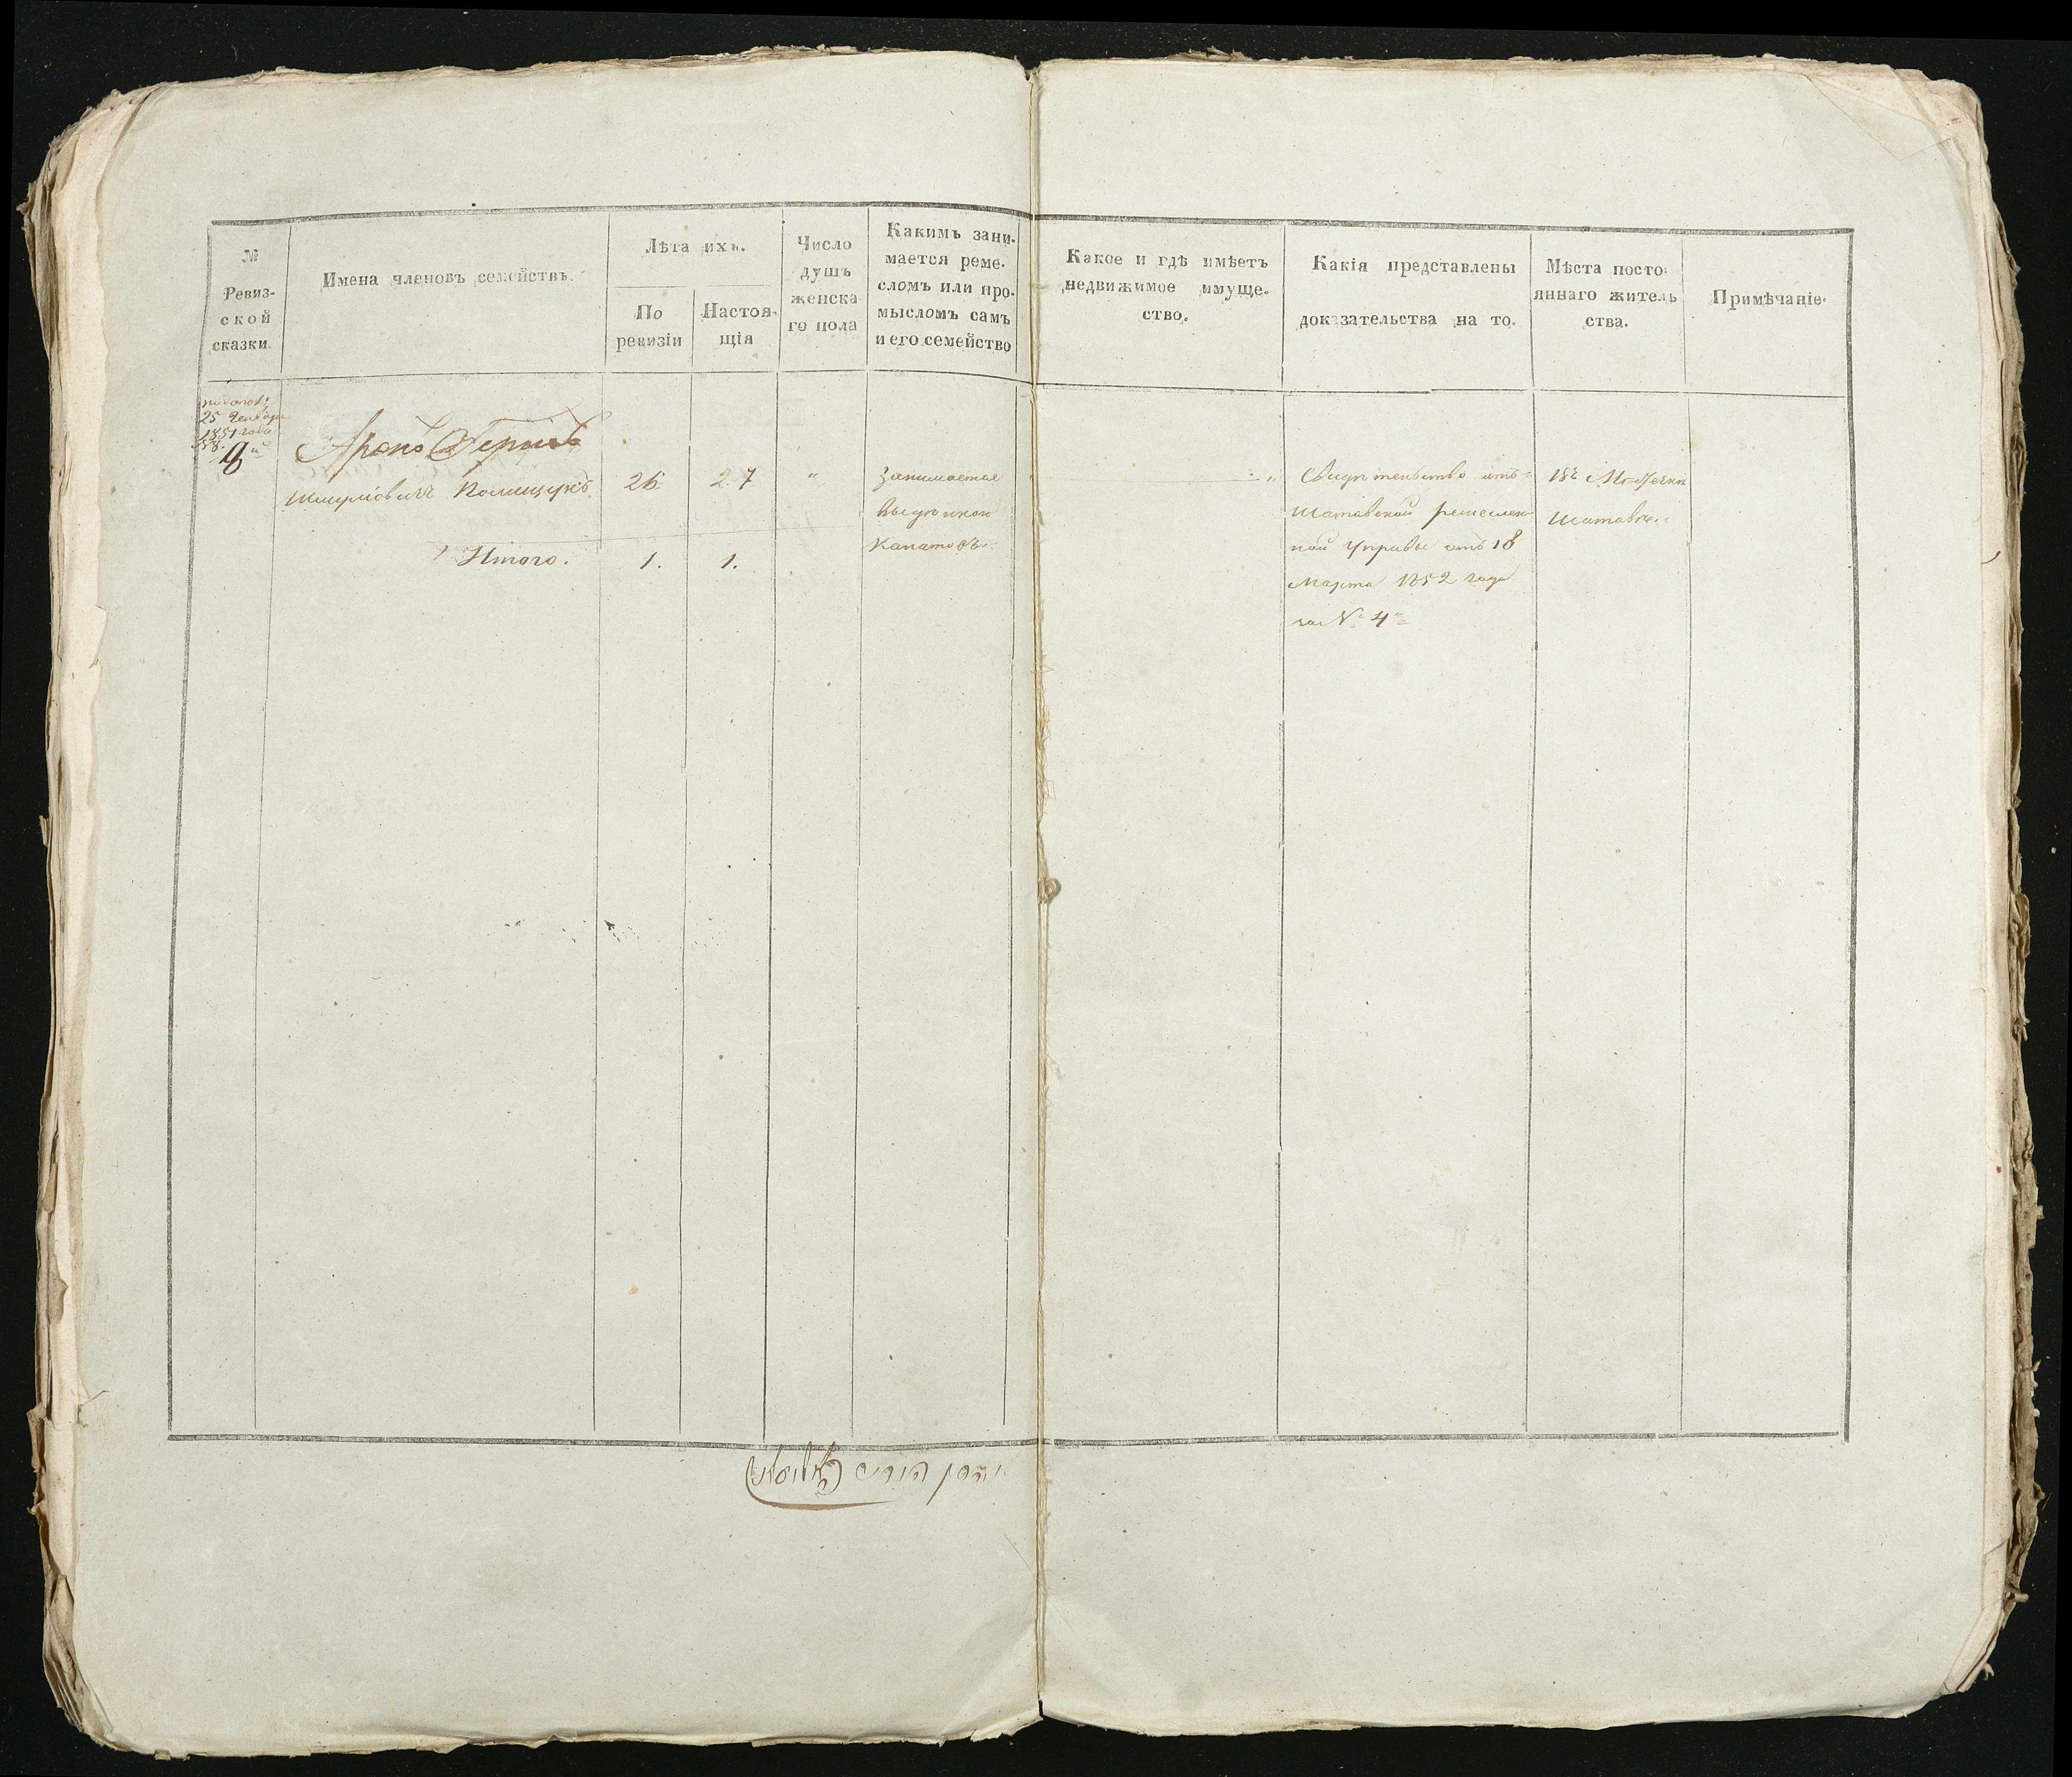 №
Ревиз-
ской
сказки.
Имена членовъ семействъ.
Лѣта ихъ.
По
ревизіи
Настоя-
щія
Число
душъ
женска-
го пола
Какимъ зани-
мается реме-
сломъ или про-
мысломъ самъ
и его семейство
Какое и гдѣ имѣетъ
недвижимое имуще-
ство.
Какія представлены
доказательства на то.
Мѣста посто-
яннаго житель
ства.
Примѣчаніе.
25
1851 года
Аронъ Герш
Шмулiовичъ
26
27
"
Занимается
канатовъ
"
Свидѣтельство отъ
Шатавской ремеслен
ной Управы отъ 18
Марта 1852 года
за № 4
Итого.
1.
1.